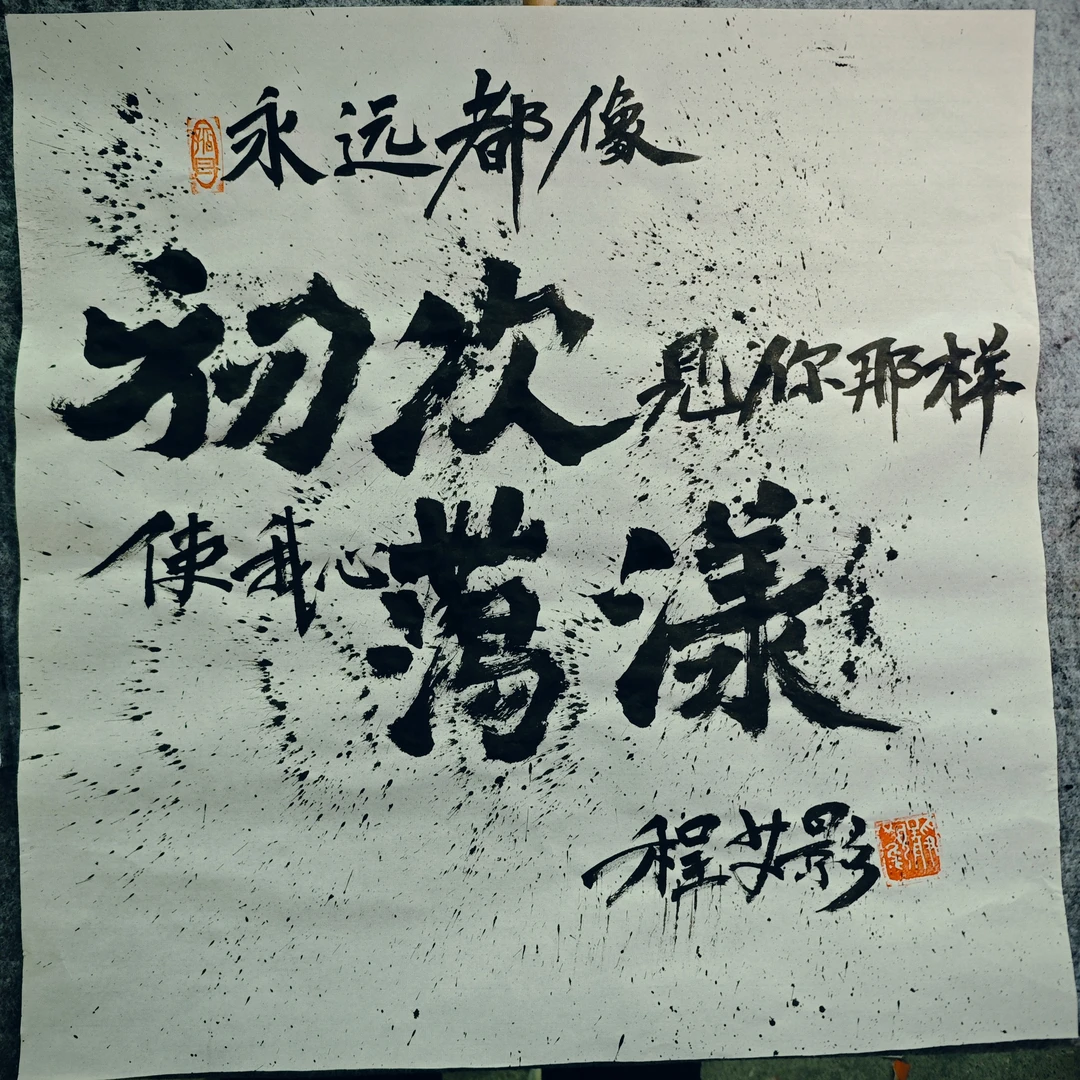 永远都像
初次见你那样
使我心荡漾
程艾影